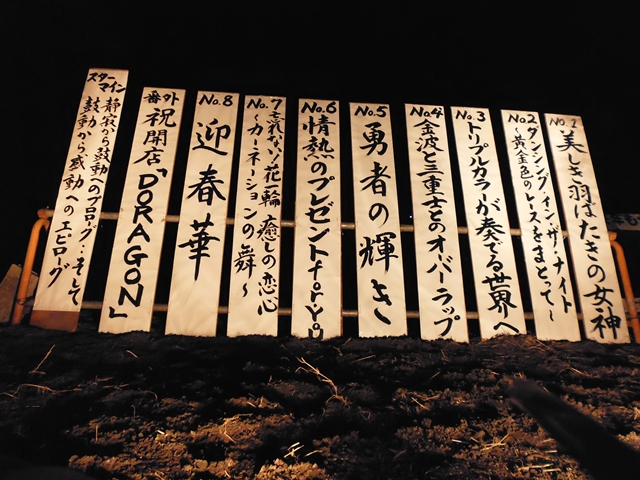 No.1
美しき羽ばたきの女神
No.2
ダンシング・イン・ザ・ナイト
〜黄金色のレースをまとって〜
No.3
トリプルカラーが奏でる世界へ
No.4
金波と三重士とのオーバーラップ
No.5
勇者の輝き
No.6
情熱のプレゼントforyou
No.7
忘れない!花一輪 癒しの恋心
〜カーネーションの舞〜
No.8
迎春華
番外
祝開店「DORAGON」
スターマイン
静寂から鼓動へのプロローグ・そして
鼓動から感動へのエピローグ